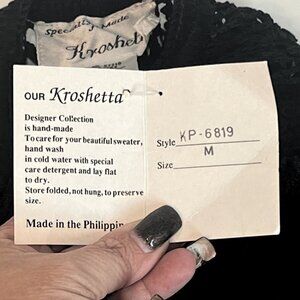 Specially Made
OUR Kroshetta
Designer Collection
is hand-made
To care for your beautiful sweater,
hand wash
in cold water with special
care detergent and lay flat
to dry.
Store folded, not hung, to preserve
size.
Made in the Philippin
Style KP-6819
Size M